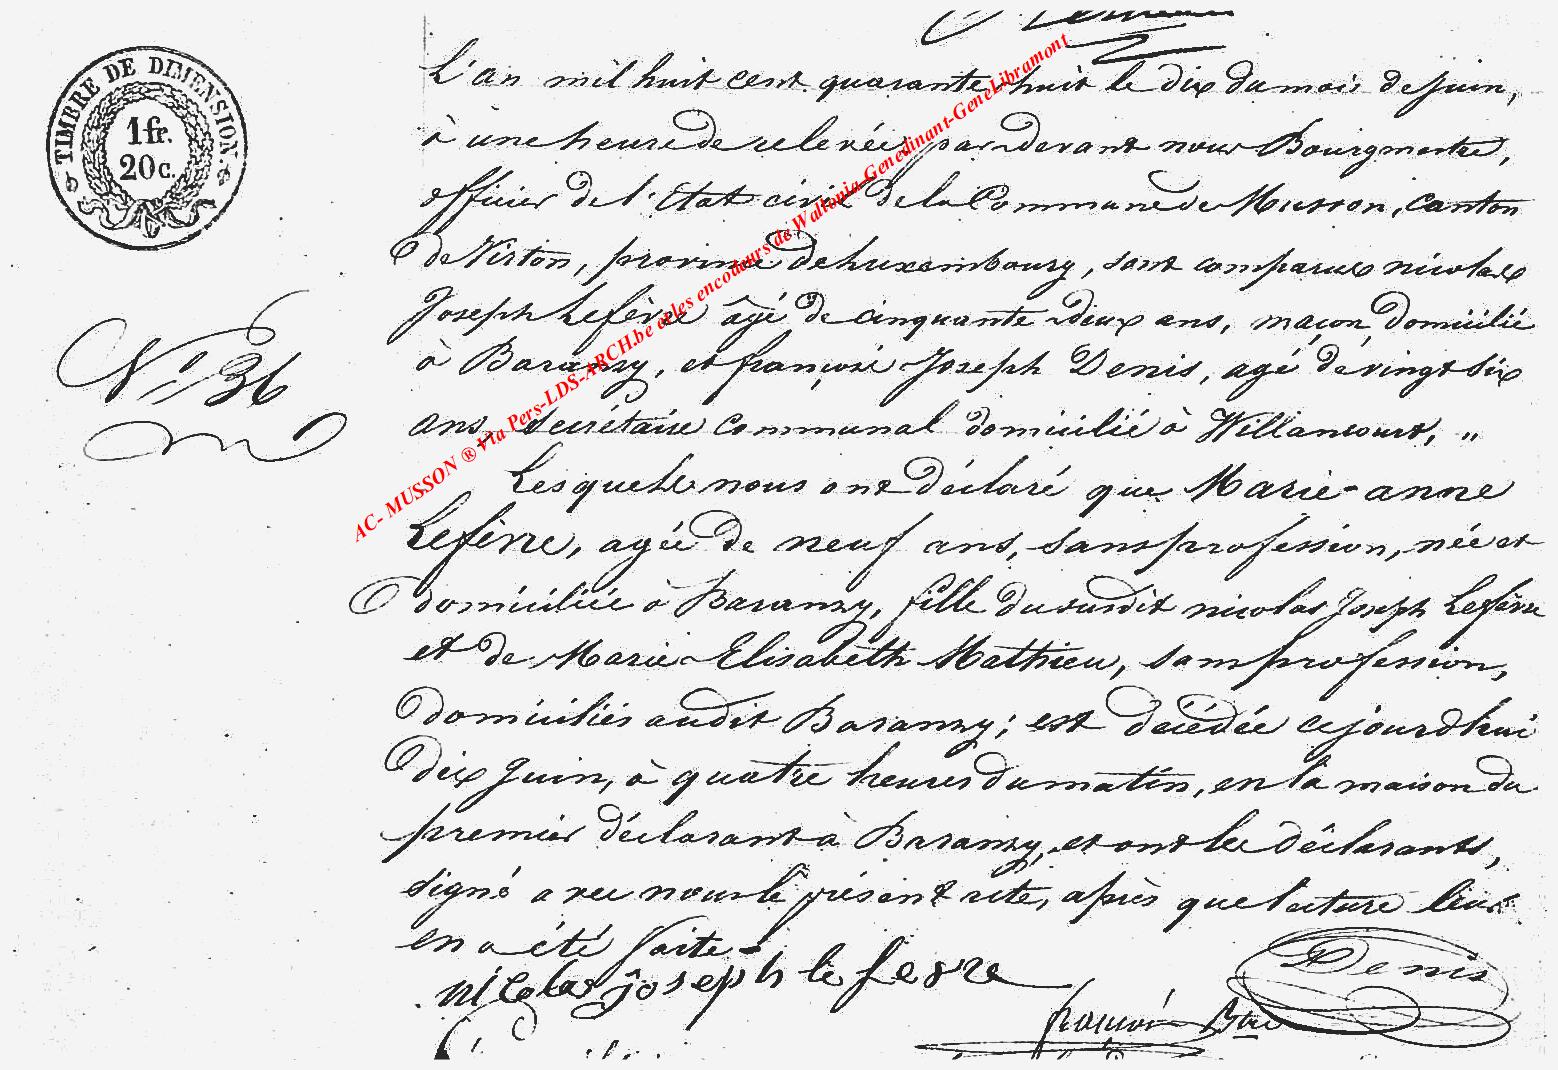 TIMBRE DE DIMENSION.
1 fr.
20 c.
L'an mil huit cent quarante huit le dix du mois de juin,
à une heure de relevée, par devant nous Bourgmestre,
officier de l'Etat civil de la Commune de Musson, canton
de Virton, province de Luxembourg, sont comparus nicolas
Joseph Lefèvre âgé de cinquante deux ans, maçon domicilié
à Baranzy, et françois Joseph Denis, agé de vingt six
ans, secrétaire communal domicilié à Willancourt, "
N° 36
Lesquels nous ont déclaré que Marie-anne
Lefèvre, agée de neuf ans, sans profession, née et
domiciliée à Baranzy, fille du susdit nicolas Joseph Lefèvre
et de Marie Elisabeth Mathieu, sans profession,
domiciliés audit Baranzy; est décédée cejourd'hui
dix Juin, à quatre heures du matin, en la maison du
premier déclarant à Baranzy, et ont les déclarants,
signé avec nous le présent acte, après que lecture leur
en a été faite.
nicolas joseph le fevre
Denis
AC- MUSSON ® Via Pers-LDS-ARCH.be et les encodeurs de Wallonia-Genedinant-GeneLibramont